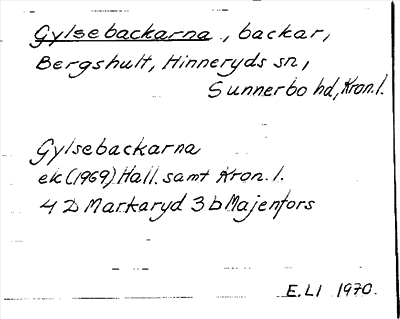 Gylsebackarna, backar,
Bergshult, Hinneryds sn,
Sunnerbo hd, Kron.l.
Gylsebackarna
ek (1969) Hall. samt Kron. l.
4 D Markaryd 3 b Majenfors
E. LI 1970.